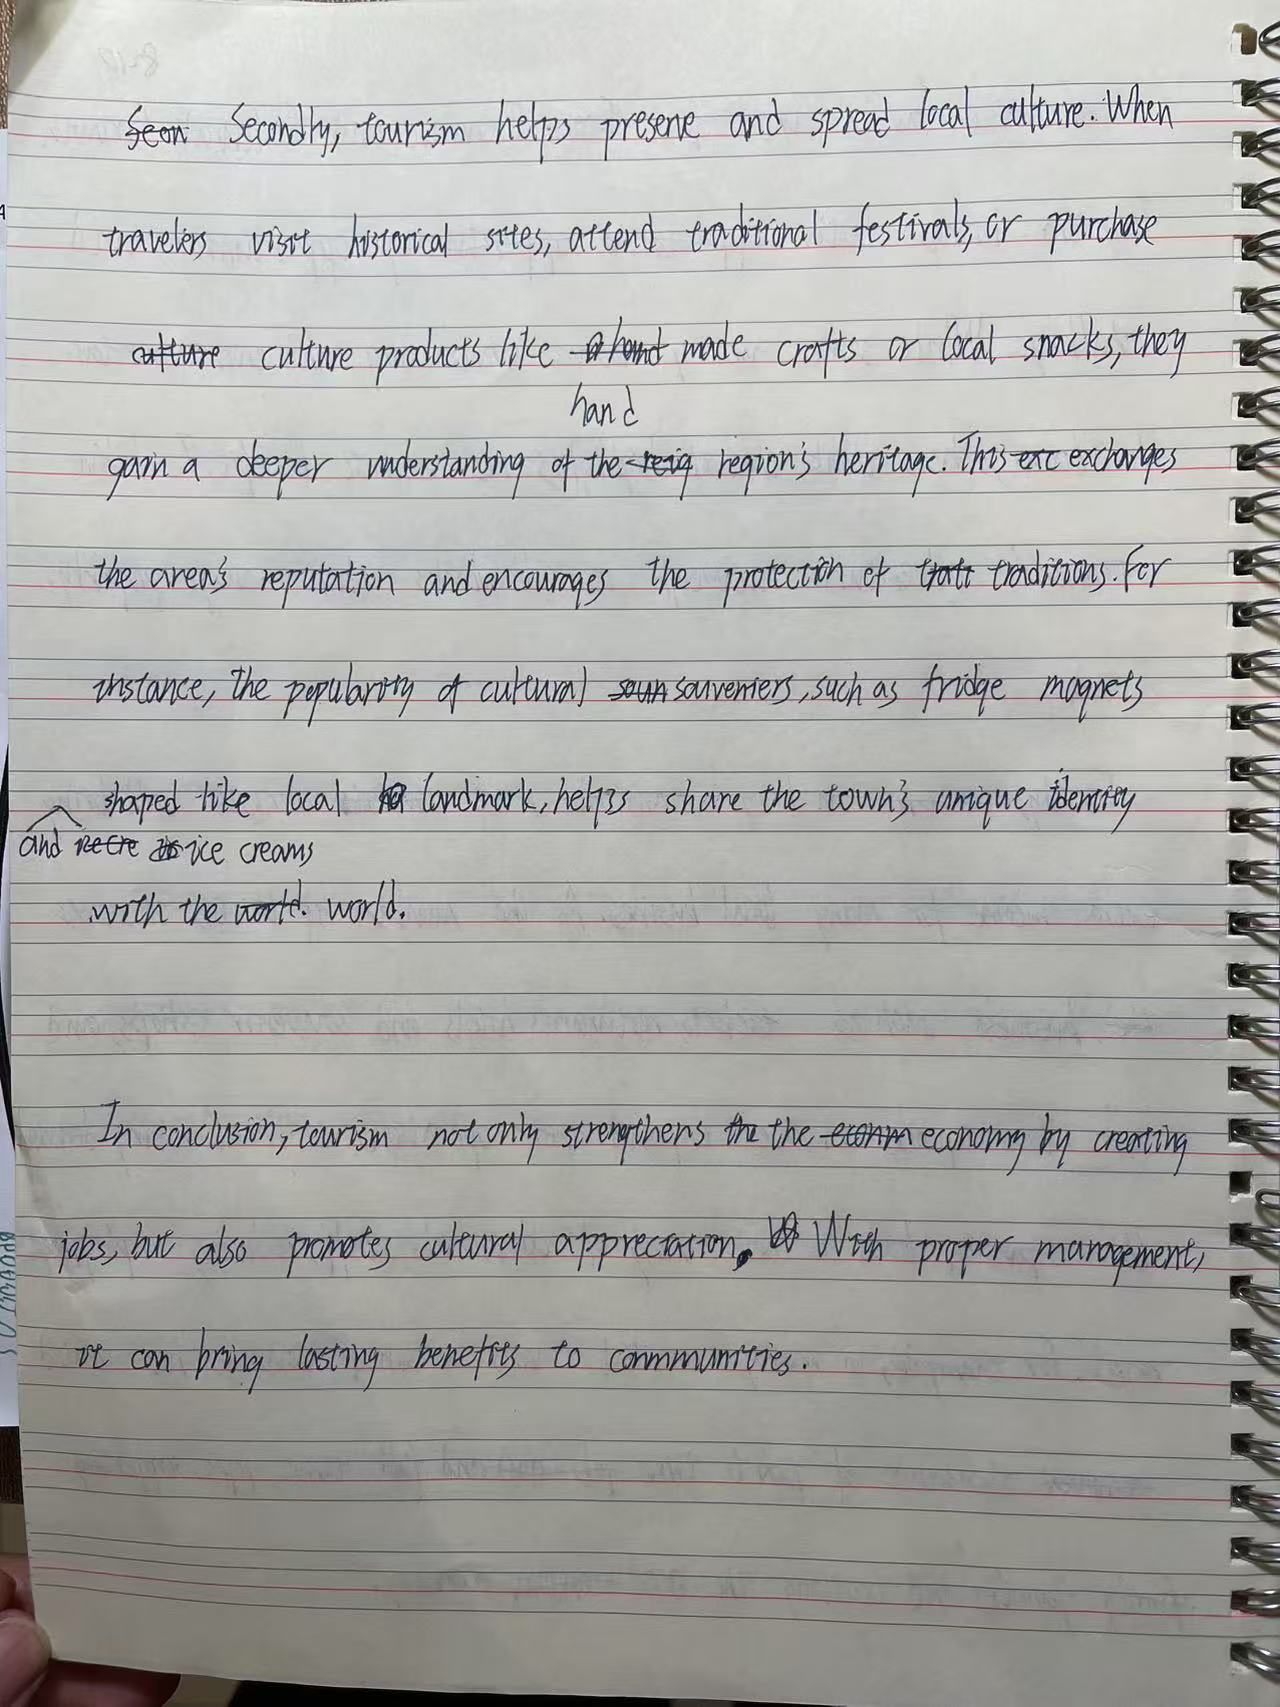 Secondly, tourism helps presene and spread local culture. When
travelers visit historical sites, attend traditional festivals, or purchase
culture culture products like made crafts or local snacks, they
hand
gain a deeper understanding of the reig region's heritage. This exc exchanges
the area's reputation and encourages the protection of tratt traditions. For
instance, the popularity of cultural soun souveniers, such as fridge magnets
shaped like local landmark, helps share the town's unique identity
and ice creams
with the world. world.
In conclusion, tourism not only strengthens the the econm economy by creating
jobs, but also promotes cultural appreciation. With proper management,
it can bring lasting benefits to conmmunities.